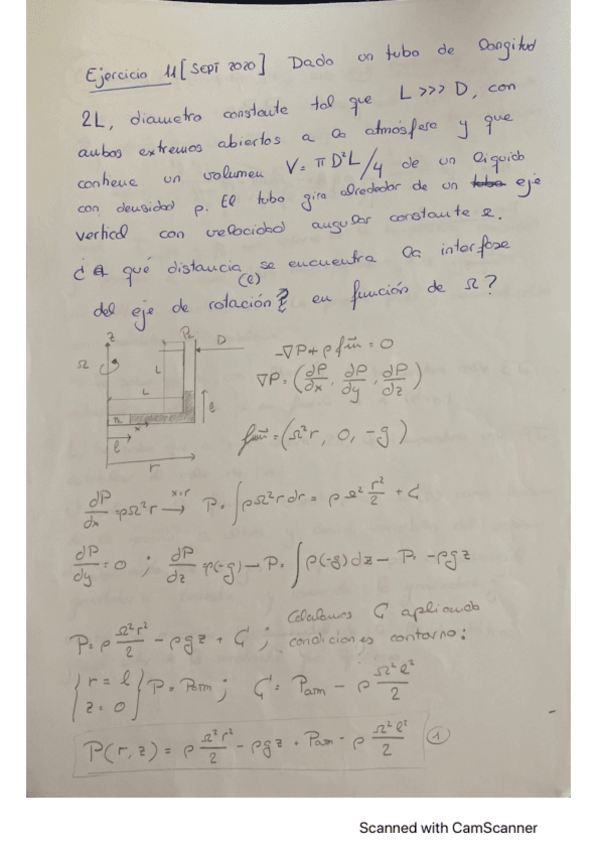 Ejercicio 11 [SEPT 2020] Dado un tubo de longitud
2L, diametro constante tal que L >>> D, con
ambos extremos abiertos a la atmósfera y que
contiene un volumen V = π D²L/4 de un líquido
con densidad ρ. El tubo gira alrededor de un eje
vertical con velocidad angular constante Ω.
¿A qué distancia (l) se encuentra la interfase
del eje de rotación? en función de Ω?
z
Ω
D
L
L
x
l
l
r
-∇P + ρ f⃗m = 0
∇P = (dP/dx, dP/dy, dP/dz)
f⃗m = (Ω²r, 0, -g)
dP/dx = ρΩ²r —x=r→ P = ∫ρΩ²r dr = ρ Ω² r²/2 + C
dP/dy = 0 ; dP/dz = ρ(-g) → P = ∫ρ(-g)dz → P = -ρgz
P = ρ Ω²r²/2 - ρgz + C ; Calculamos C aplicando
condiciones contorno:
{r = l z = 0} P = Patm ; C = Patm - ρ Ω²l²/2
P(r, z) = ρ Ω²r²/2 - ρgz + Patm - ρ Ω²l²/2 ①
Scanned with CamScanner